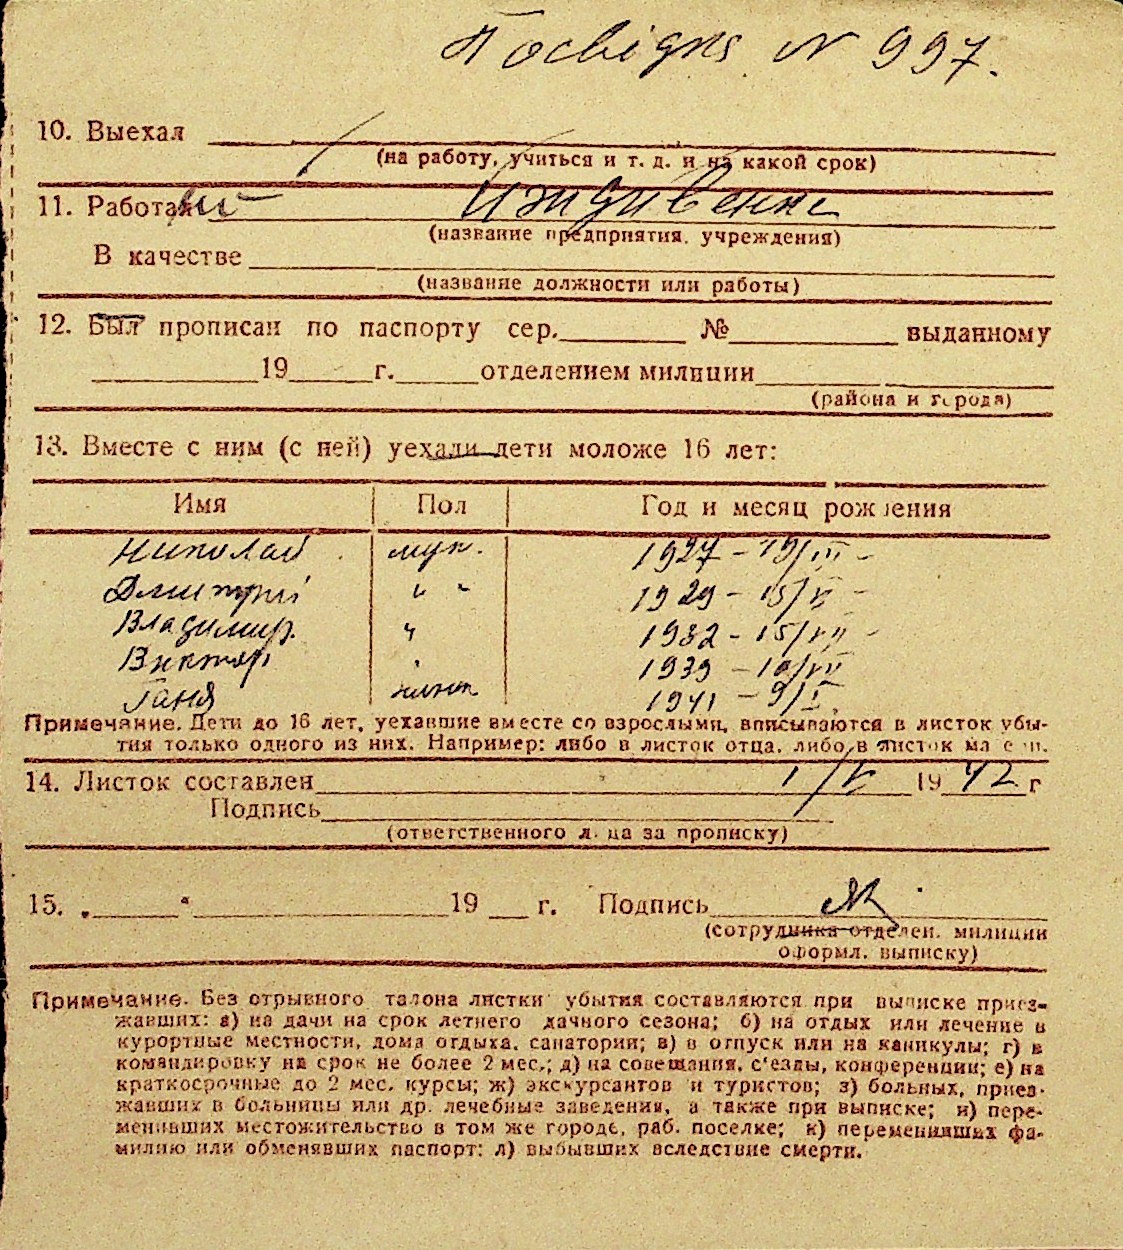 Посвідка № 997.
10. Выехал
(на работу, учиться и т. д. и на какой срок)
11. Работал Иждивенка
(название предприятия, учреждения)
В качестве
(название должности или работы)
12. Был прописан по паспорту сер. № выданному
19 г. отделением милиции
(района и города)
13. Вместе с ним (с ней) уехали дети моложе 16 лет:
Имя Пол Год и месяц рождения
Николай муж. 1927 – 19/III –
Дмитрий " " 1929 – 15/VI –
Владимир " 1932 – 15/VII –
Виктор " 1939 – 19/VII
Ганя 1941 – 9/I.
Примечание. Дети до 16 лет, уехавшие вместе со взрослыми, вписываются в листок убы-
тия только одного из них. Например: либо в листок отца, либо в листок матери.
14. Листок составлен 1/V 1942 г
Подпись
(ответственного лица за прописку)
15. „ " 19 г. Подпись
(сотрудника отделен. милиции
оформл. выписку)
Примечание. Без отрывного талона листки убытия составляются при выписке приез-
жавших: а) на дачи на срок летнего дачного сезона; б) на отдых или лечение в
курортные местности, дома отдыха, санатории; в) в отпуск или на каникулы; г) в
командировку на срок не более 2 мес.; д) на совещания, с'езды, конференции; е) на
краткосрочные до 2 мес. курсы; ж) экскурсантов и туристов; з) больных, приез-
жавших в больницы или др. лечебные заведения, а также при выписке; и) пере-
менивших местожительство в том же городе, раб. поселке; к) переменивших фа-
милию или обменявших паспорт; л) выбывших вследствие смерти.